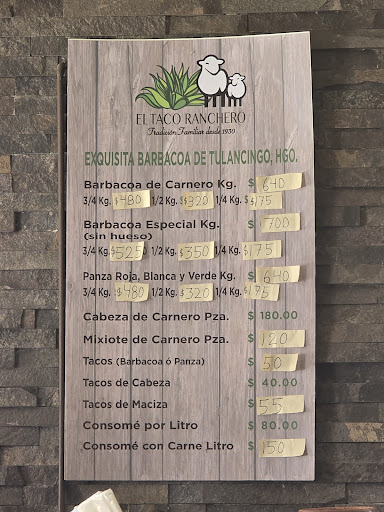 EL TACO RANCHERO
Tradición Familiar desde 1950
EXQUISITA BARBACOA DE TULANCINGO, HGO.
Barbacoa de Carnero Kg. $ 640
3/4 Kg. $480 1/2 Kg. $320 1/4 Kg. $ $175
Barbacoa Especial Kg. $ 700
(sin hueso)
3/4 Kg. $525 1/2 Kg. $350 1/4 Kg. $175
Panza Roja, Blanca y Verde Kg. $ 640
3/4 Kg. $480 1/2 Kg. $320 1/4 Kg. $175
Cabeza de Carnero Pza. $ 180.00
Mixiote de Carnero Pza. $ 120
Tacos (Barbacoa ó Panza) $ 50
Tacos de Cabeza $ 40.00
Tacos de Maciza $ 55
Consomé por Litro $ 80.00
Consomé con Carne Litro $ 150